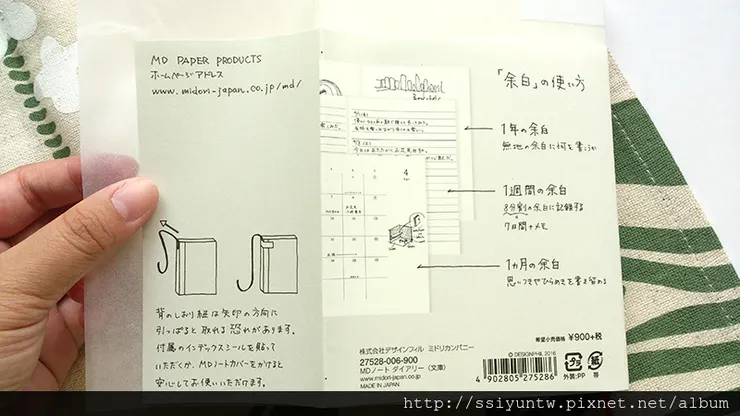 MD PAPER PRODUCTS
ホームページアドレス
www.midori-japan.co.jp/md/
背のしおり紐は矢印の方向に
引っぱると取れる恐れがあります。
付属のインデックスシールを貼って
いただくか、MDノートカバーをかけると
安心してお使いいただけます。
「余白」の使い方
1年の余白
無地の余白に何を書こうか
1週間の余白
8分割の余白に記録する
7日間+メモ
1ヵ月の余白
思いつきやひらめきを書き留める
4
株式会社デザインフィル ミドリカンパニー
27528-006-900
MDノート ダイアリー〈文庫〉
www.midori-japan.co.jp
MADE IN JAPAN
希望小売価格 ¥900+税
© DESIGNPHIL 2016
4 902805 275286
外装:PP
紙
帯
http://ssiyuntw.pixnet.net/album